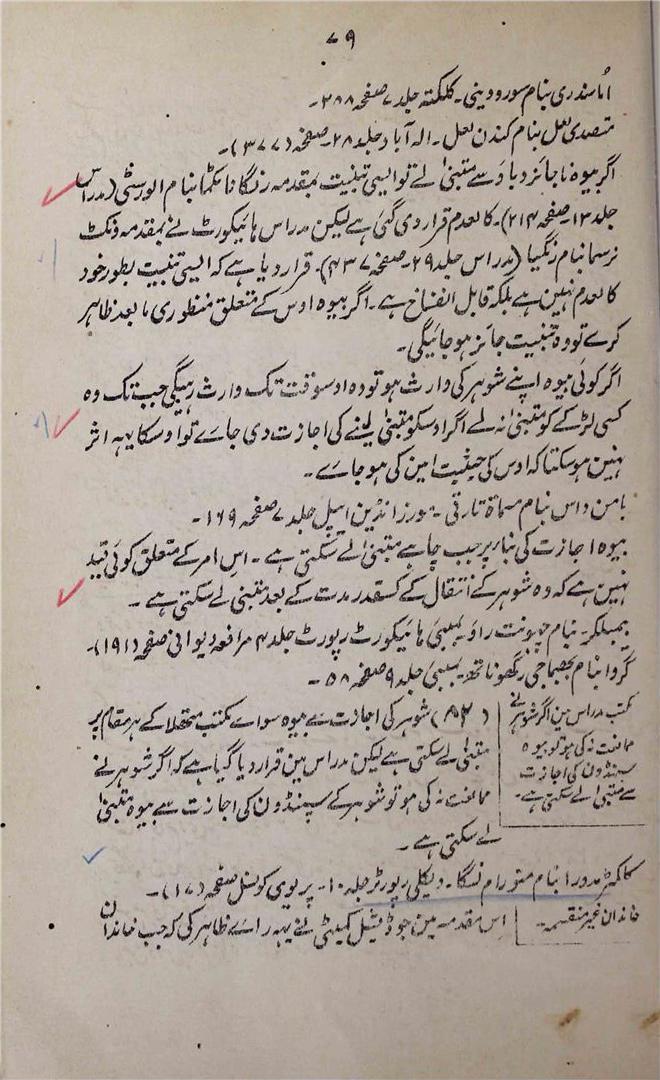 ۷۹
اُما سندری بنام سورودینی۔ کلکتہ جلد ۷ صفحہ ۲۸۸۔
متصدی لعل بنام کندن لعل۔ الہ آباد جلد ۲۸۔ صفحہ (۳۷۷)۔
اگر بیوہ ناجائز دباؤ سے متبنیٰ لے تو ایسی تبنیت بمقدمہ رنگانا یکما بنام الورسٹی (مدراس
جلد ۱۳۔ صفحہ ۲۱۴)۔ کالعدم قرار دی گئی ہے لیکن مدراس ہائیکورٹ نے بمقدمہ ونکٹ
نرسما بنام رنگیا (مدراس جلد ۲۹۔ صفحہ ۴۳۷)۔ قرار دیا ہے کہ ایسی تبنیت بطور خود
کالعدم نہین ہے بلکہ قابل انفساخ ہے۔ اگر بیوہ اوس کے متعلق منظوری مابعد ظاہر
کرے تو وہ تبنیت جائز ہوجائیگی۔
اگر کوئی بیوہ اپنے شوہر کی وارث ہو تو وہ اوسوقت تک وارث رہیگی جب تک وہ
کسی لڑکے کو متبنیٰ نہ لے اگر اوسکو متبنیٰ لینے کی اجازت دی جاے تو اوسکا یہہ اثر
نہین ہوسکتا کہ اوس کی حیثیت امین کی ہوجاے۔
بامن داس بنام مسماۃ تارنی۔ مورز انڈین اپیل جلد ۷ صفحہ ۱۶۹۔
بیوہ اجازت کی بنا پر جب چاہے متبنیٰ لے سکتی ہے۔ اس امر کے متعلق کوئی قید
نہین ہے کہ وہ شوہر کے انتقال کے کسقدر مدت کے بعد متبنیٰ لے سکتی ہے۔
بنام جیونت راو۔ بمبئی ہائیکورٹ رپورٹ جلد ۴ مرافعہ دیوانی صفحہ (۱۹۱)۔
گروا بنام بھیماجی رگھوناتھ۔ بمبئی جلد ۹ صفحہ ۵۸۔
مکتب مدراس مین اگر شوہر نے
ممانعت نہ کی ہو تو بیوہ
سپنڈون کی اجازت
سے متبنیٰ لے سکتی ہے۔
(۸۲) شوہر کی اجازت سے بیوہ سواے مکتب متھلا کے ہر مقام پر
متبنیٰ لے سکتی ہے لیکن مدراس مین قرار دیا گیا ہے کہ اگر شوہر نے
ممانعت نہ کی ہو تو شوہر کے سپنڈون کی اجازت سے بیوہ متبنیٰ
لے سکتی ہے۔
کلکٹر مدورا بنام متورام لنگا۔ ویکلی رپورٹر جلد ۱۰۔ پریوی کونسل صفحہ (۱۷)۔
خاندان غیر منقسمہ۔
اس مقدمہ مین جوڈیشل کمیٹی نے یہہ راے ظاہر کی کہ جب خاندان